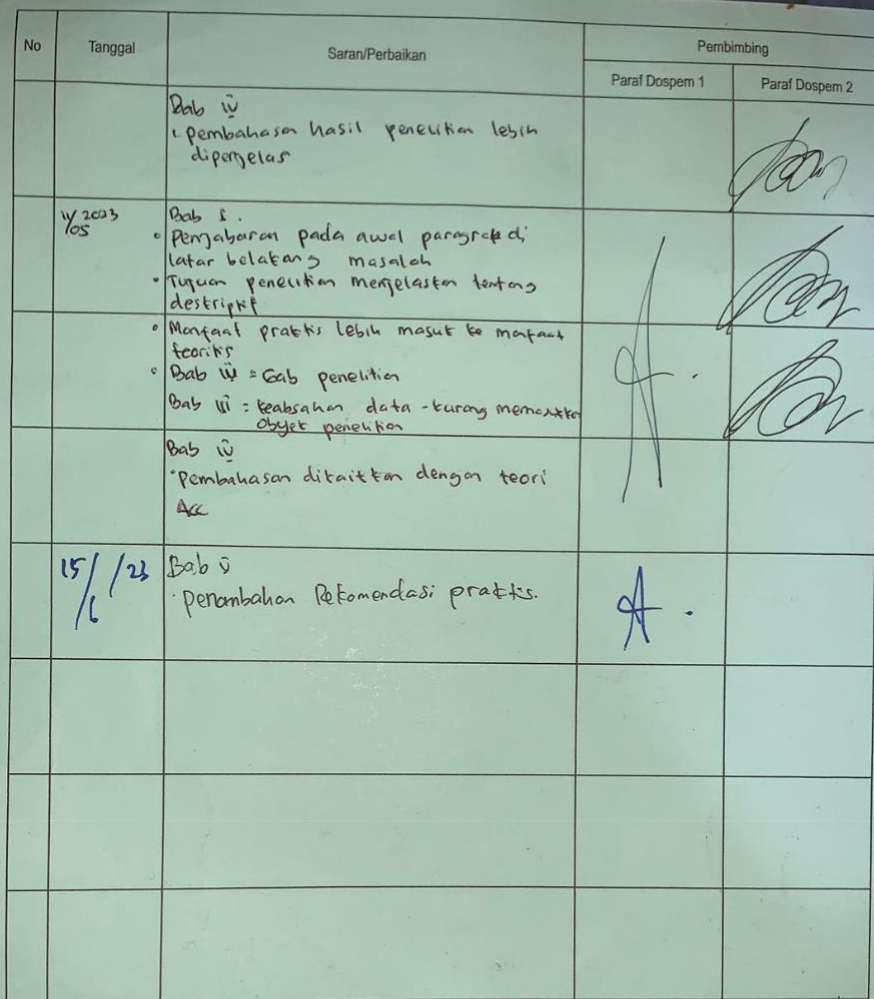 No Tanggal Saran/Perbaikan Pembimbing
Paraf Dospem 1 Paraf Dospem 2
Bab iv
1. pembahasan hasil penelitian lebih
diperjelas
11/05 2023
Bab I.
• Penjabaran pada awal paragraf di
latar belakang masalah
• Tujuan penelitian menjelaskan tentang
deskriptif
• Manfaat praktis lebih masuk ke manfaat
teoritis
• Bab = Gab penelitian
Bab iii = keabsahan data - kurang
Obyek penelitian
Bab iv
• Pembahasan dikaitkan dengan teori
Acc
15/6/23
Bab v
· penambahan Rekomendasi praktis.